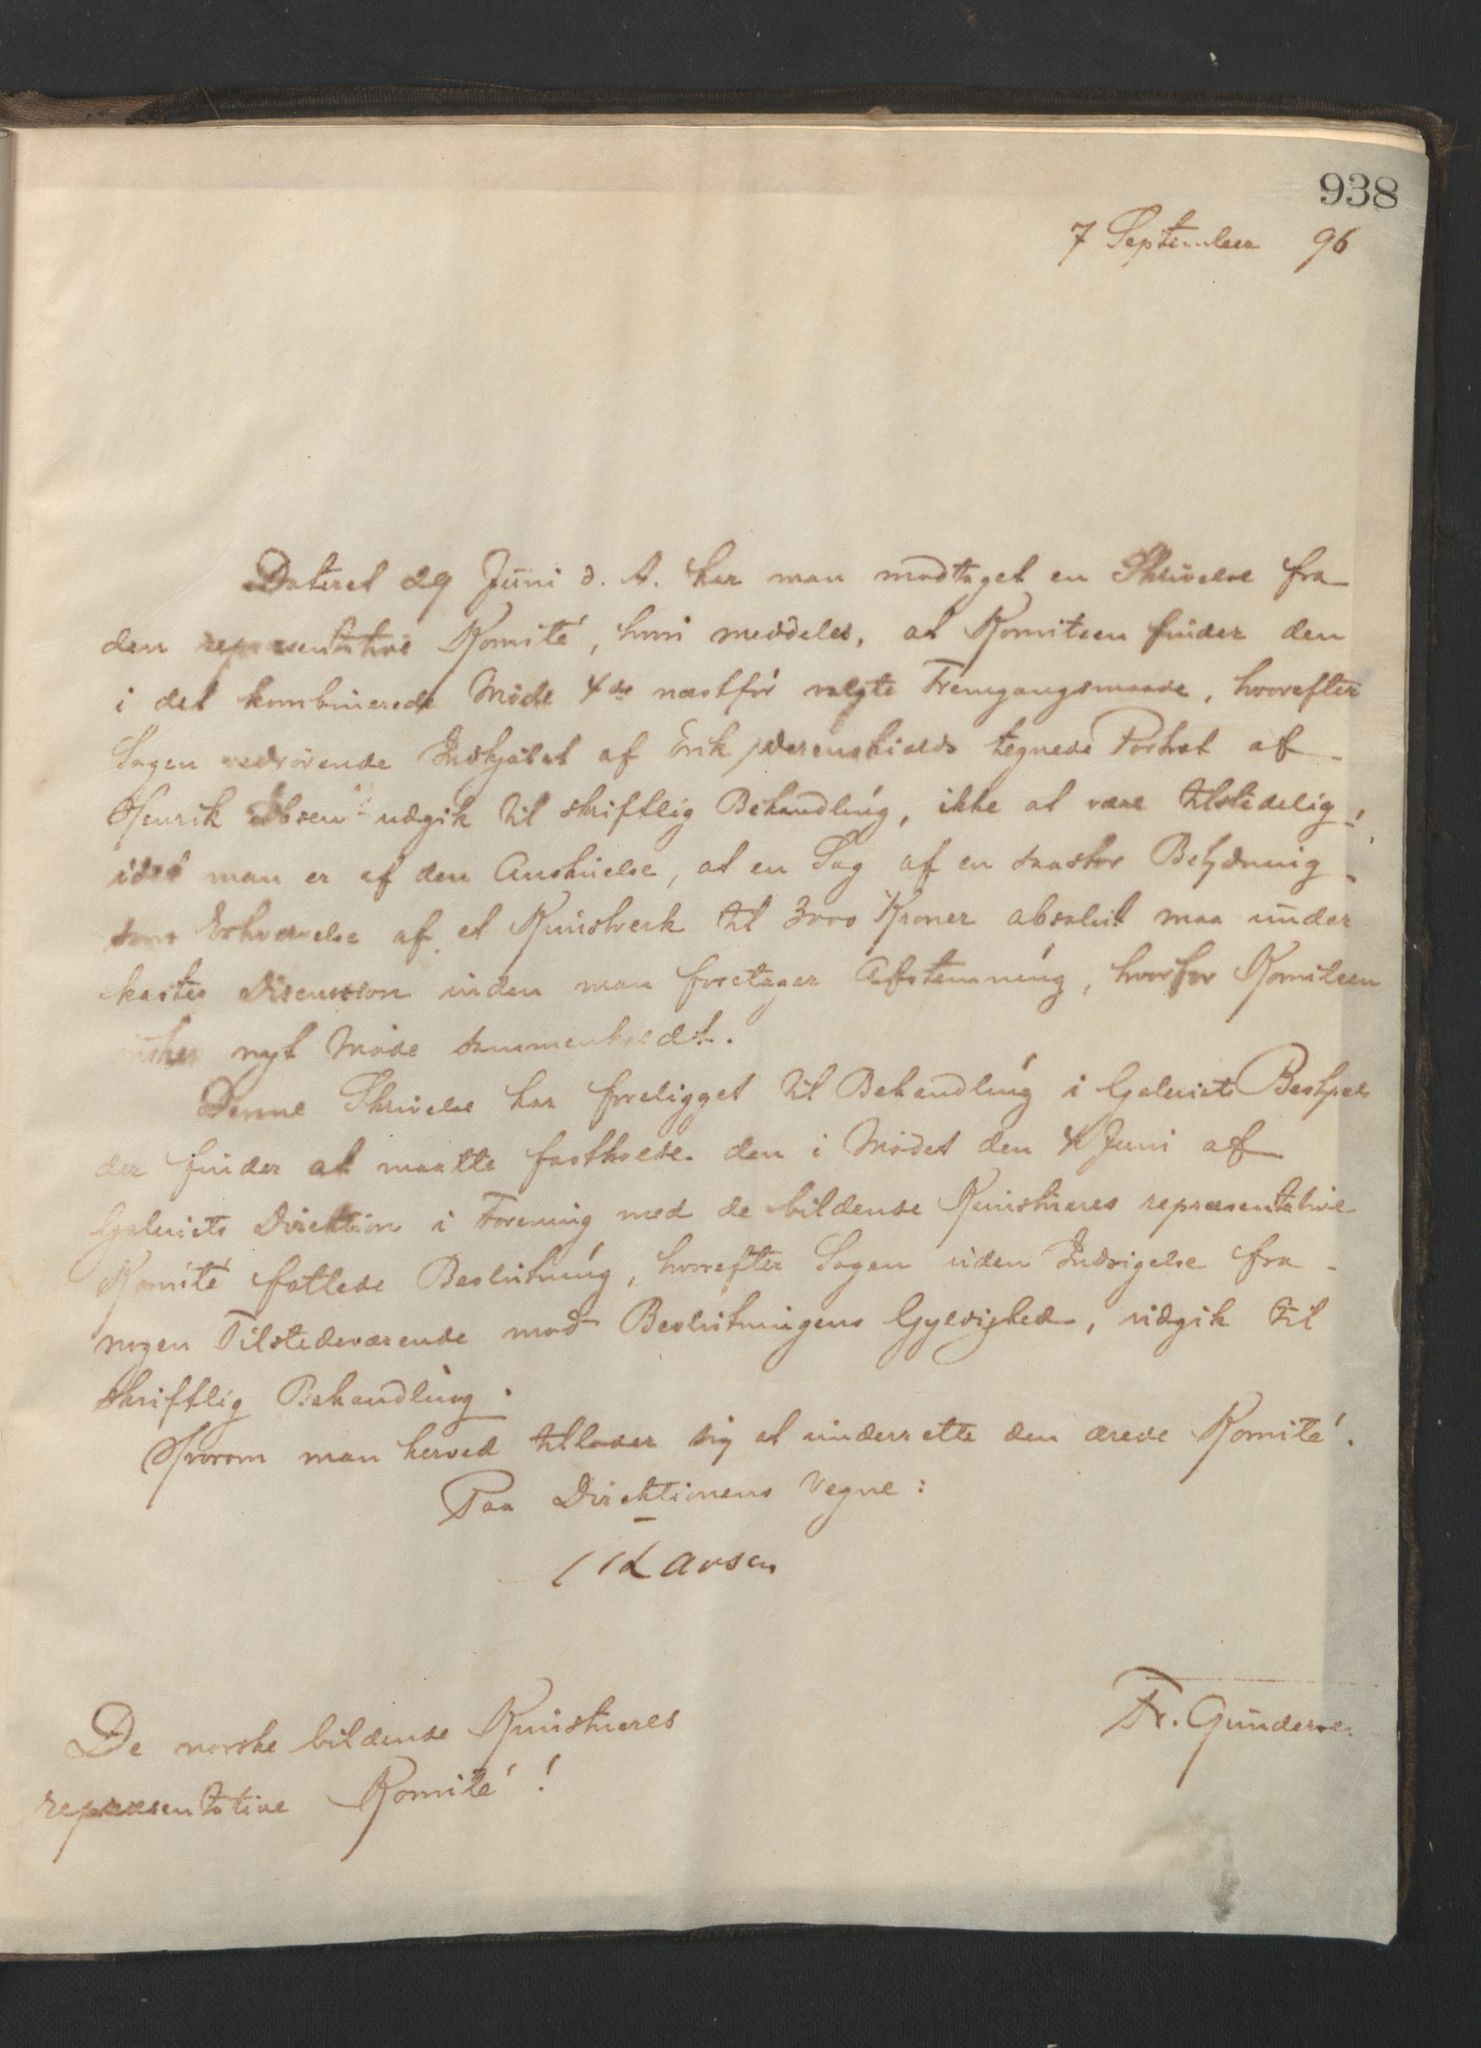 938
7 September 96
Dateret 29 Juni d. A. har man modtaget en Skrivelse fra
den repræsentative Komité, hvori meddeles, at Komiteen finder den
i det kombinerede Møde 4de næstfør valgte Fremgangsmaade, hvorefter
Sagen vedrørende Indkjøbet af Erik Werenskiolds tegnede Portræt af
Henrik Ibsen udgik til skriftlig Behandling, ikke at være tilstedelig,
idet man er af den Anskuelse, at en Sag af en saa stor Betydning
som Erhvervelse af et Kunstverk til 3000 Kroner absolut maa under
kastes Discussion inden man foretager Afstemning, hvorfor Komiteen
ønsker nyt Møde sammenkaldt.
Denne Skrivelse har foreligget til Behandling i Galeriets
der finder at maatte fastholde den i Mødet den 4 Juni af
Galeriets Direktion i Forening med de bildende Kunstneres repræsentative
Komité fattede Beslutning, hvorefter Sagen uden Indsigelse fra
nogen Tilstedeværende mod Beslutningens Gyldighed, udgik til
skriftlig Behandling.
Hvorom man herved tillader sig at underrette den ærede Komité.
Paa Direktionens Vegne:
Larsen
Fr. Gundersen
De norske bildende Kunstneres
repræsentative Komité!